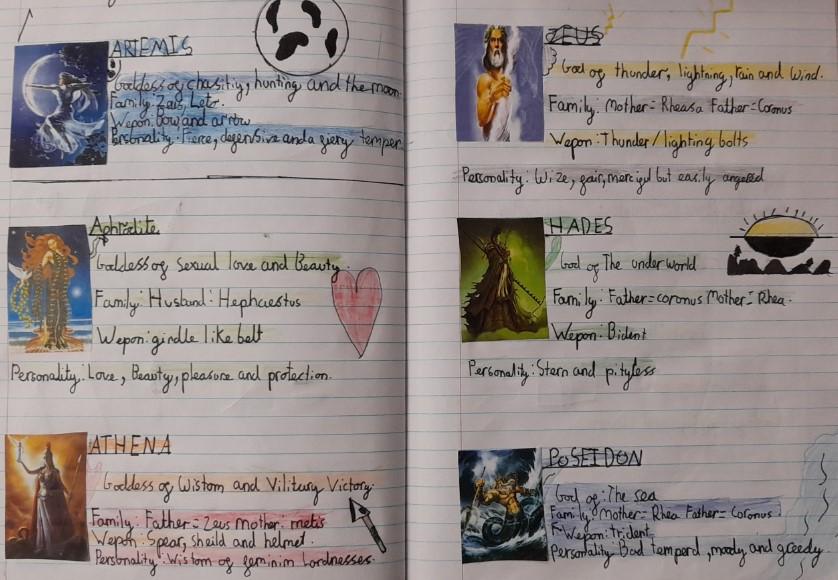 ARTEMIS
Goddess of chasitiy, hunting and the moon.
Family: Zeus, Leto.
Wepon: bow and arrow
Personality: Fierce, defensive and a fiery temper
Aphrodite
Goddess of sexual love and Beauty.
Family: Husband: Hephaestus
Wepon: girdle like belt
Personality: Love, Beauty, pleasure and protection.
ATHENA
Goddess of Wistom and Vilitury Victory.
Family: Father = Zeus Mother: metis
Wepon: Spear, sheild and helmet.
Personality: Wistom of feminim
ZEUS
God of thunder, lightning, rain and wind.
Family: Mother = Rheasa Father = Coronus
Wepon: Thunder/lighting bolts
Personality: Wize, fair, merciful but easily angered
HADES
God of The underworld
Family: Father = coronus Mother = Rhea.
Wepon: Bident
Personality: Stern and pityless
POSEIDON
God of: The sea
Family: Mother = Rhea Father = Coronus
Wepon: trident
Personality: Bad temperd, moody and greedy